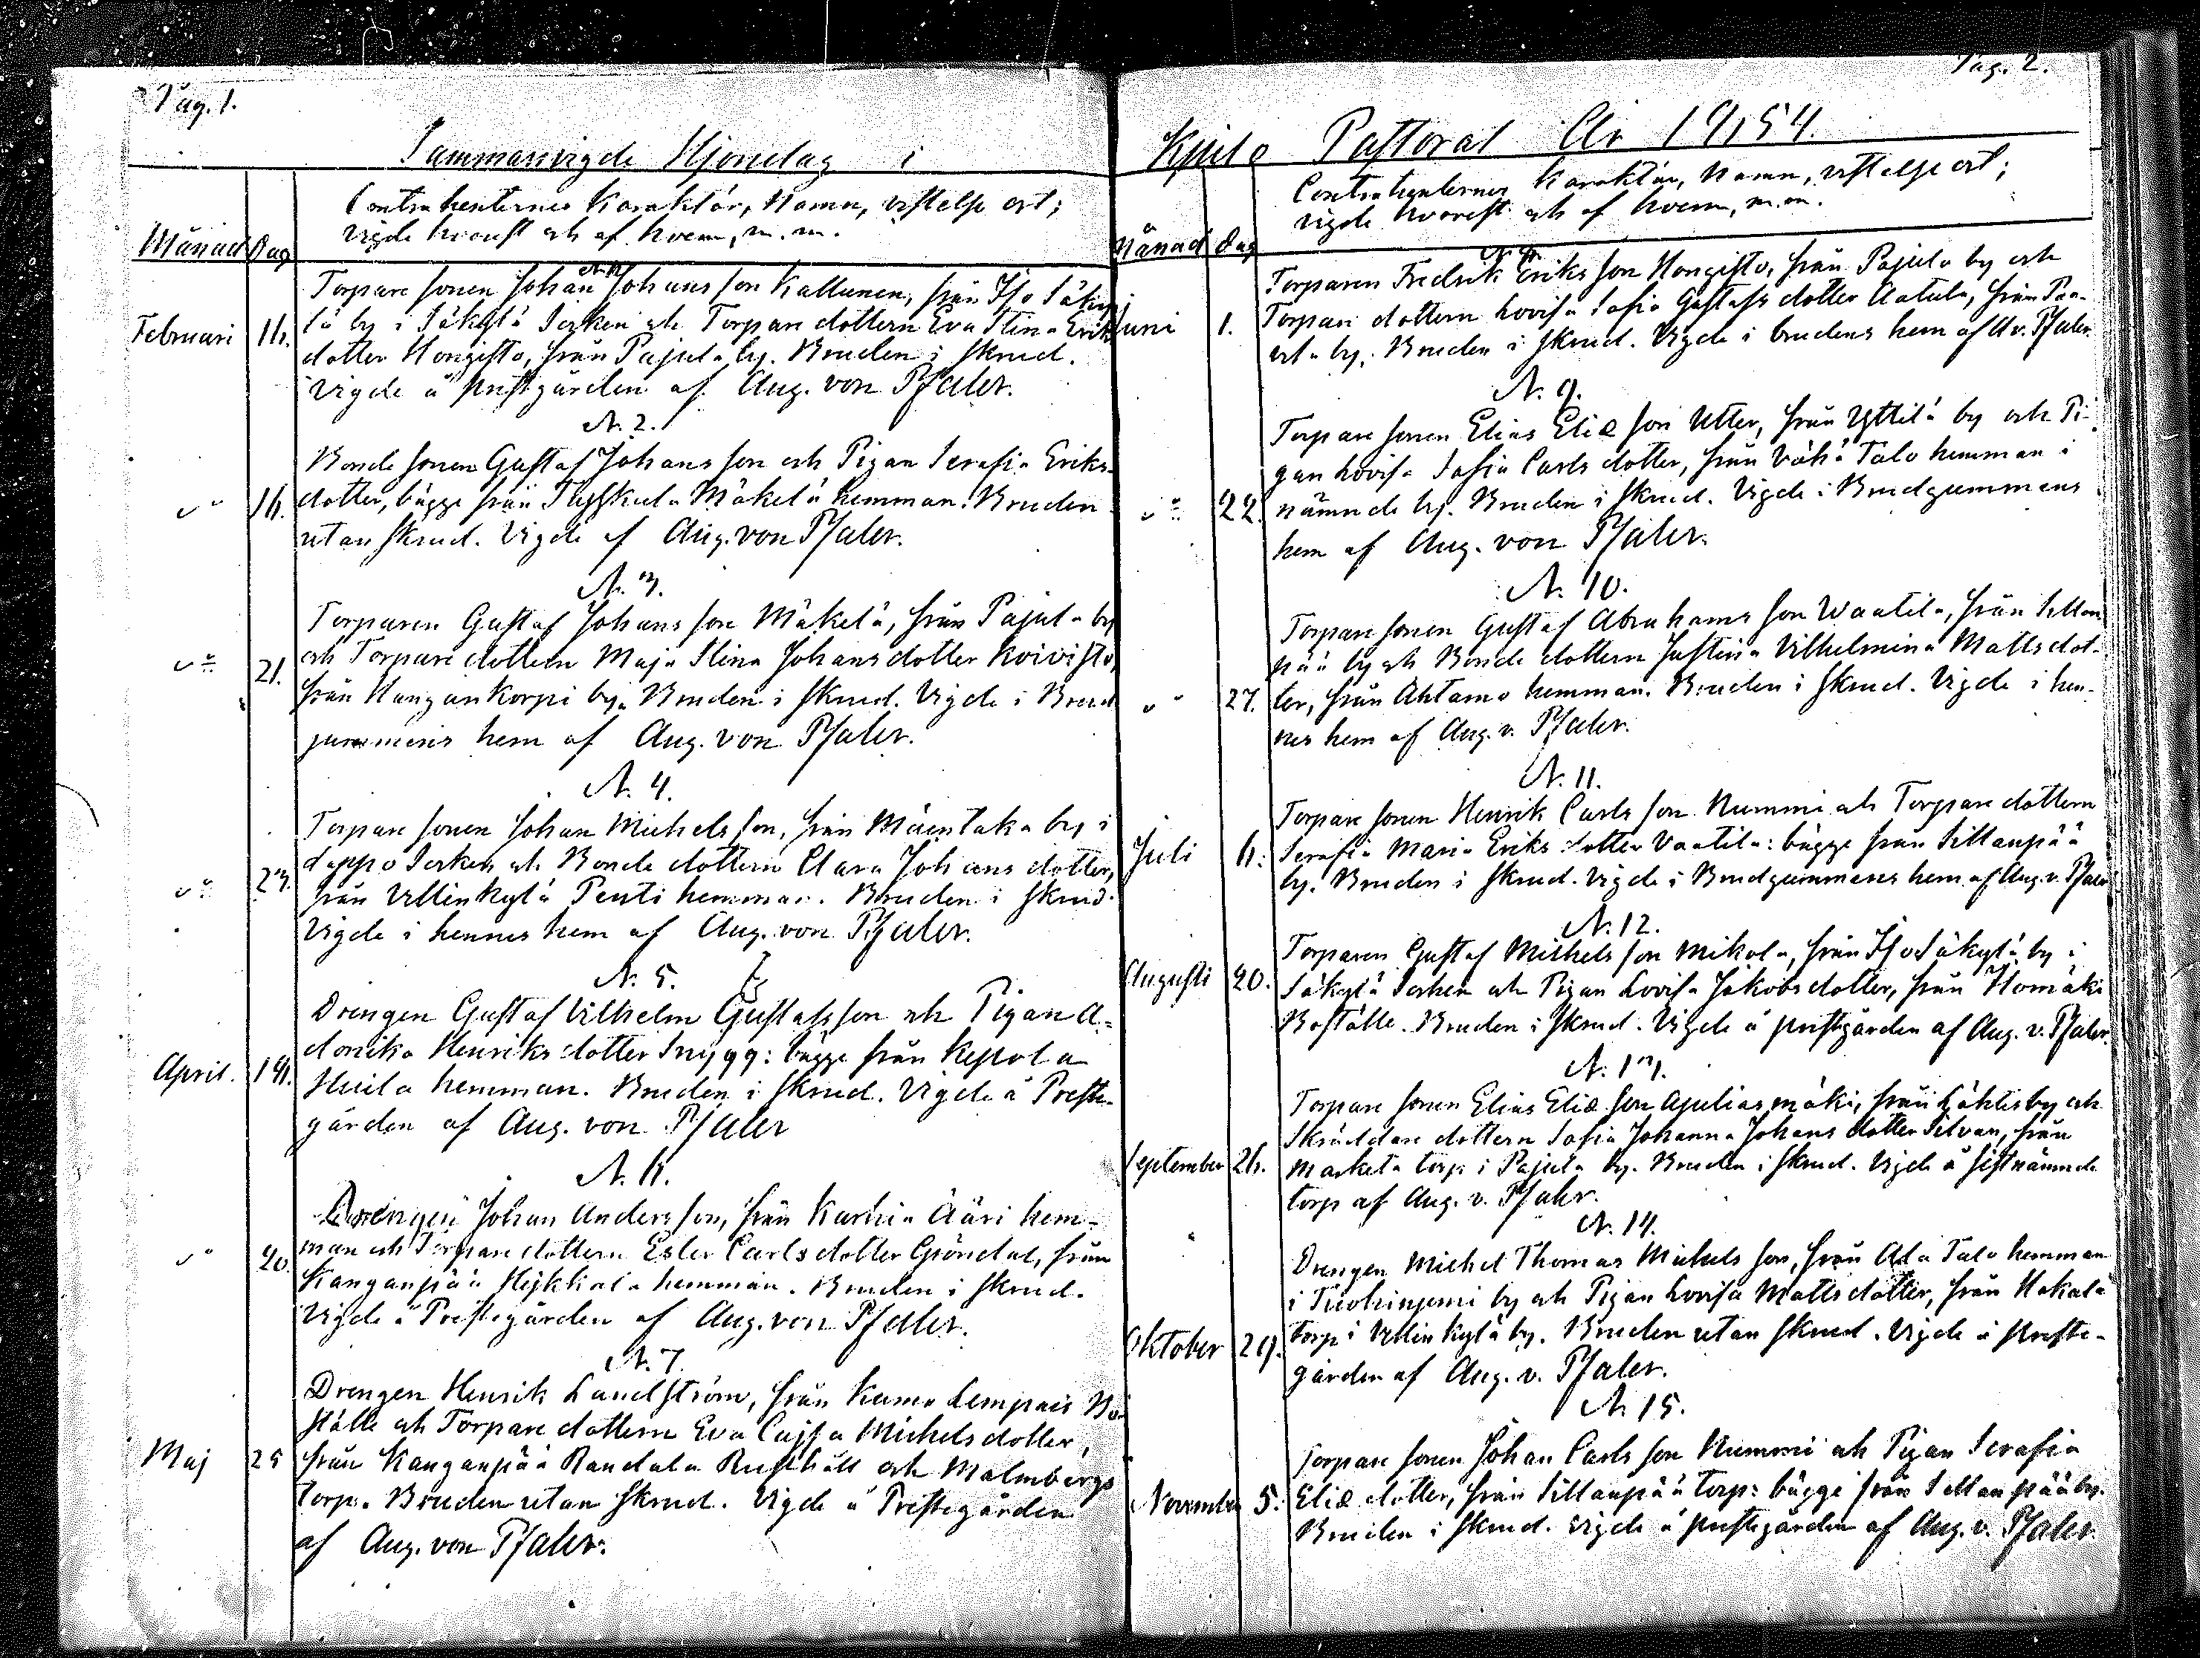 Pag. 1.
Sammanvigde Hjonelag i
Contrahenternes Karaktär, Namn, vistelse ort;
Vigde hvarest och af hvem, m. m.
Månad Dag
N. 1.
Torpare sonen Johan Johans son Kallunen, från Iso Säky-
lä by i Säkylä Socken och Torpare dottern Eva Stina Eriks
Februari 16.
dotter Hongisto, från Pajula by. Bruden i skrud.
Vigde å prestgården af Aug. von Pfaler.
N. 2.
Bonde sonen Gustaf Johans son och Pigan Serafia Eriks-
dotter, bägge från Mäkelä hemman. Bruden
16.
utan skrud. Vigde af Aug. von Pfaler.
N. 3.
Torparen Gustaf Johans son Mäkelä, från Pajula by
och Torpare dottern Maja Stina Johans dotter Koivisto,
21.
från Kangankorpi by. Bruden i skrud. Vigde i Brud
gummens hem af Aug. von Pfaler.
N. 4.
Torpare sonen Johan Michels son, från Mäentaka by i
Loppo Socken och Bonde dottern Clara Johans dotter,
23.
från Uttinkylä Pentti hemman. Bruden i skrud.
Vigde i hennes hem af Aug. von Pfaler.
N. 5.
Drengen Gustaf Vilhelm Gustafsson och Pigan A-
donika Henriks dotter Snygg: bägge från Kepola
April. 18.
Huila hemman. Bruden i skrud. Vigde å Preste-
gården af Aug. von Pfaler
N. 6.
Drengen Johan Anders son, från Karhia Ääri hem-
man och Torpare dottern Ester Carls dotter Gröndal, från
20.
Kanganpää Heikkilä hemman. Bruden i skrud.
Vigde å Prestegården af Aug. von Pfaler.
N. 7.
Drengen Henrik Landström, från Kumo Lempais Bo-
ställe och Torpare dottern Eva Cajsa Michels dotter,
Maj 25
från Kanganpää Randala Rusthåll och Malmbergs
torp. Bruden utan skrud. Vigde å Prestegården
af Aug. von Pfaler.
Pag. 2.
Kjulo Pastorat År 1854.
Contrahenternes Karaktär, Namn, vistelse ort;
vigde hvarest och af hvem, m. m.
Månad Dag
N. 8.
Torparen Fredrik Eriks son Hongisto, från Pajula by och
Juni 1.
Torpare dottern Lovisa Sofia Gustafs dotter Aatula, från Pan-
elia by. Bruden i skrud. Vigde i brudens hem af A v. Pfaler.
N. 9.
Torpare sonen Elias Eliæ son Utter, från Yttilä by och Pi-
gan Lovisa Sofia Carls dotter, från Vähä Talo hemman i
22.
nämnde by. Bruden i skrud. Vigde i Brudgummens
hem af Aug. von Pfaler.
N. 10.
Torpare sonen Gustaf Abrahams son Waatila, från Sillan-
pää by och Bonde dottern Justina Vilhelmina Matts dot-
27.
ter, från Ahtamo hemman. Bruden i skrud. Vigde i hen-
nes hem af Aug. v. Pfaler.
N. 11.
Torpare sonen Henrik Carls son Nummi och Torpare dottern
Juli 6.
Serafia Maria Eriks dotter Vaatila: bägge från Sillanpää
by. Bruden i skrud. Vigde i Brudgummens hem af Aug. v. Pfaler
N. 12.
Torparen Gustaf Michels son Mikola, från Iso Säkylä by i
Augusti 20.
Säkylä Socken och Pigan Lovisa Jakobs dotter, från Honiäki
Boställe. Bruden i skrud. Vigde å prestgården af Aug. v. Pfaler.
N. 13.
Torpare sonen Elias Eliæ son Ajuliasmäki, från Lähtis by och
Skräddare dottern Sofia Johanna Johans dotter Silvan, från
September 26.
Markela torp i Pajula by. Bruden i skrud. Vigde å sistnämnde
torp af Aug. v. Pfaler.
N. 14.
Drengen Michel Thomas Michels son, från Ala Talo hemman
i Tuohiniemi by och Pigan Lovisa Matts dotter, från Hakala
Oktober 29.
torp i Uttinkylä by. Bruden utan skrud. Vigde å Preste-
gården af Aug. v. Pfaler.
N. 15.
Torpare sonen Johan Carls son Nummi och Pigan Serafia
November 5.
Eliæ dotter, från Sillanpää torp: bägge från Sillanpää by.
Bruden i skrud. Vigde å prestegården af Aug. v. Pfaler.